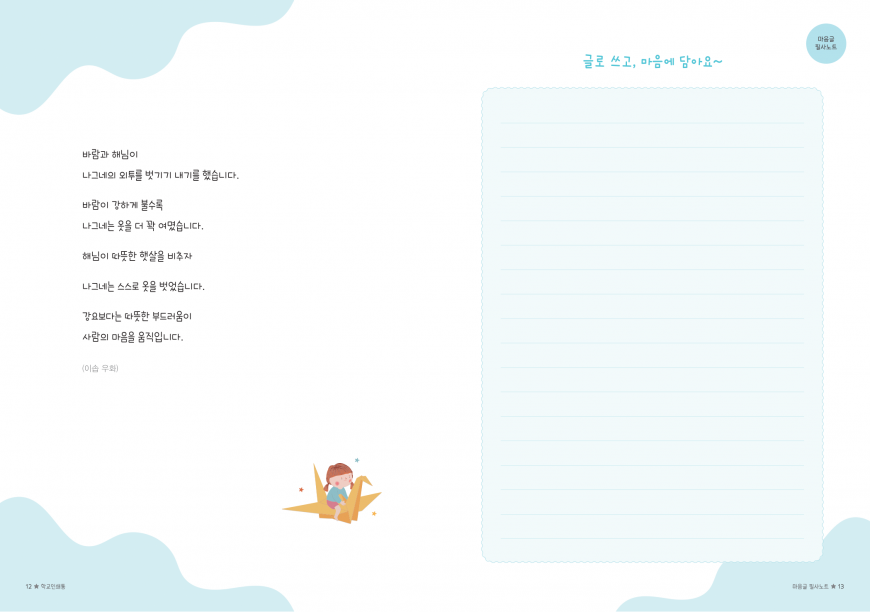 바람과 해님이
나그네의 외투를 벗기기 내기를 했습니다.
바람이 강하게 불수록
나그네는 옷을 더 꽉 여몄습니다.
해님이 따뜻한 햇살을 비추자
나그네는 스스로 옷을 벗었습니다.
강요보다는 따뜻한 부드러움이
사람의 마음을 움직입니다.
(이솝 우화)
12 ★ 학교인쇄통
마음글
필사노트
글로 쓰고, 마음에 담아요~
마음글 필사노트 ★ 13